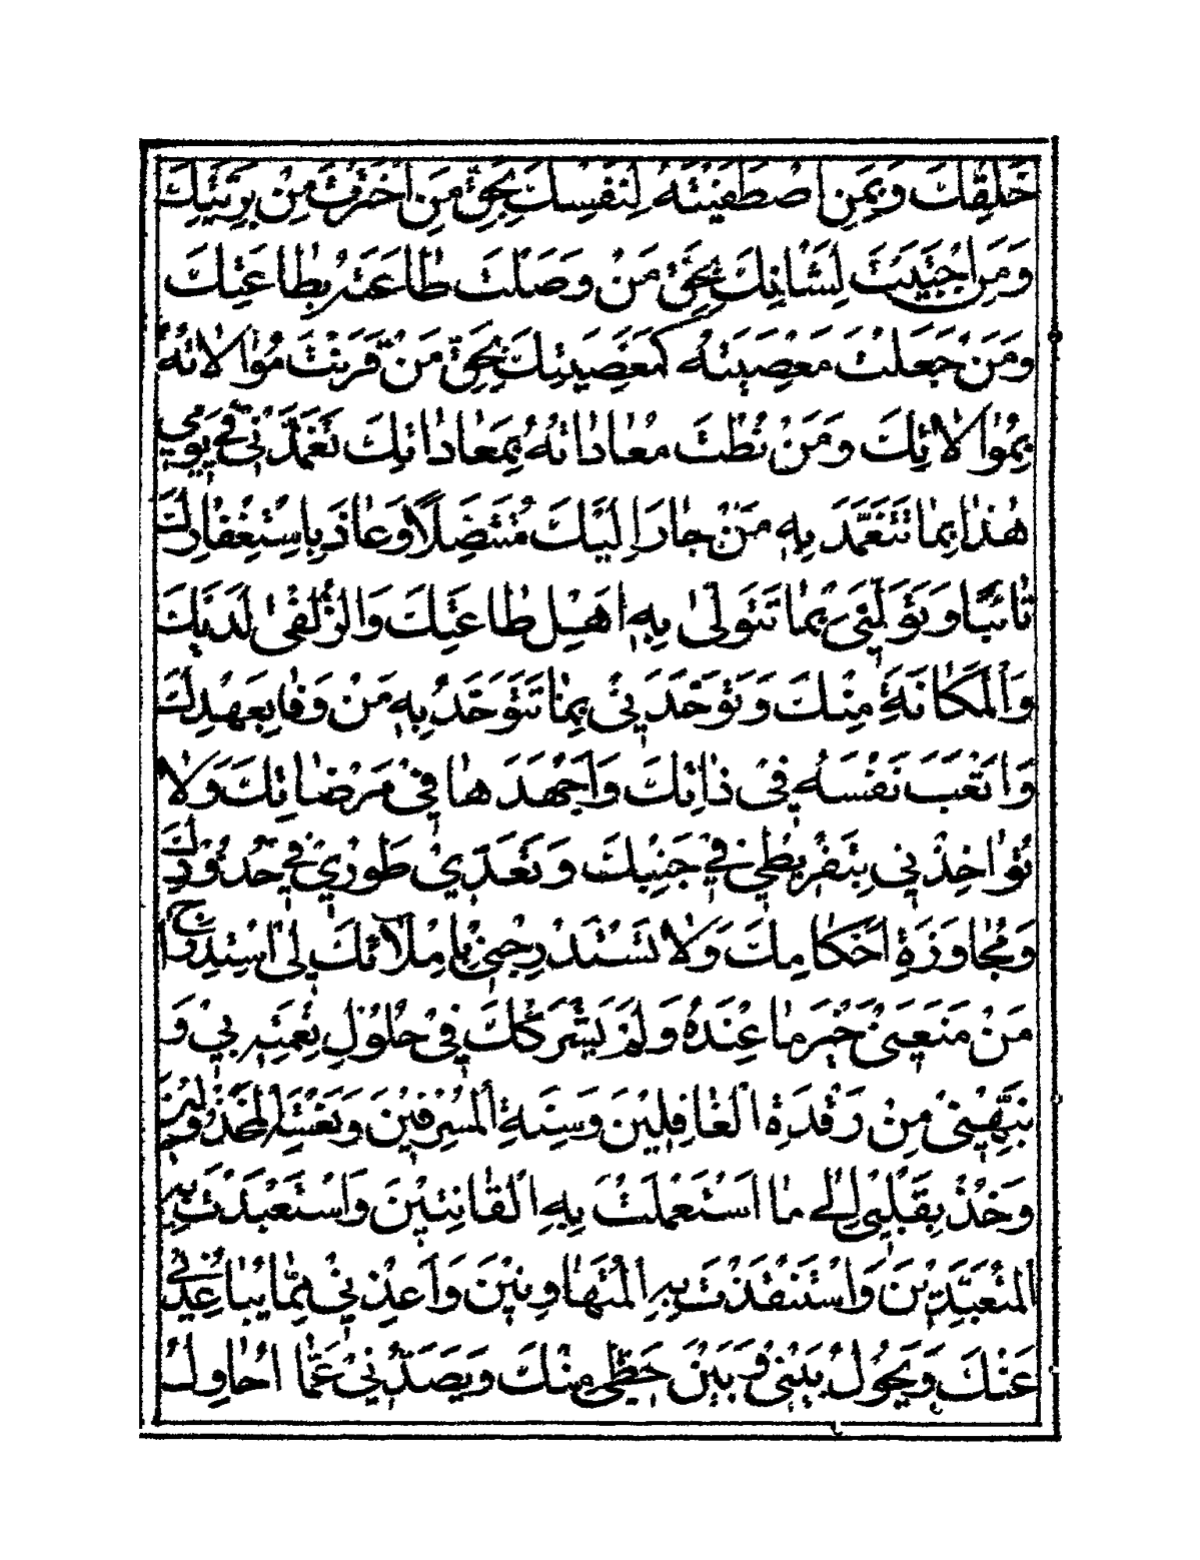 خَلْقِكَ وَبِمَنِ اصْطَفَيْتَهُ لِنَفْسِكَ بِحَقِّ مَنِ اخْتَرْتَ مِنْ بَرِيَّتِكَ
وَمَنِ اجْتَبَيْتَ لِشَأْنِكَ بِحَقِّ مَنْ وَصَلْتَ طَاعَتَهُ بِطَاعَتِكَ
وَمَنْ جَعَلْتَ مَعْصِيَتَهُ كَمَعْصِيَتِكَ بِحَقِّ مَنْ قَرَنْتَ مُوَالَاتَهُ
بِمُوَالَاتِكَ وَمَنْ نُطْتَ مُعَادَاتَهُ بِمُعَادَاتِكَ تَغَمَّدْنِي فِي يَوْمِي
هٰذَا بِمَا تَتَغَمَّدُ بِهِ مَنْ جَارَ إِلَيْكَ مُتَنَصِّلًا وَعَاذَ بِاسْتِغْفَارِكَ
تَائِبًا وَتَوَلَّنِي بِمَا تَتَوَلَّى بِهِ أَهْلَ طَاعَتِكَ وَالزُّلْفَى لَدَيْكَ
وَالْمَكَانَةِ مِنْكَ وَتَوَحَّدْنِي بِمَا تَتَوَحَّدُ بِهِ مَنْ وَفَا بِعَهْدِكَ
وَأَتْعَبَ نَفْسَهُ فِي ذَاتِكَ وَأَجْهَدَهَا فِي مَرْضَاتِكَ وَلَا
تُؤَاخِذْنِي بِتَفْرِيطِي فِي جَنْبِكَ وَتَعَدِّي طَوْرِي فِي حُدُودِكَ
وَمُجَاوَزَةِ أَحْكَامِكَ وَلَا تَسْتَدْرِجْنِي بِإِمْلَائِكَ لِي اسْتِدْرَاجَ
مَنْ مَنَعَنِي خَيْرَ مَا عِنْدَهُ وَلَمْ يَشْرَكْكَ فِي حُلُولِ نِعْمَتِهِ بِي وَ
نَبِّهْنِي مِنْ رَقْدَةِ الْغَافِلِينَ وَسِنَةِ الْمُسْرِفِينَ وَنَعْسَةِ الْمَخْذُولِينَ
وَخُذْ بِقَلْبِي إِلَى مَا اسْتَعْمَلْتَ بِهِ الْقَانِتِينَ وَاسْتَعْبَدْتَ بِهِ
الْمُتَعَبِّدِينَ وَاسْتَنْقَذْتَ بِهِ الْمُتَهَاوِنِينَ وَأَعِذْنِي مِمَّا يُبَاعِدُنِي
عَنْكَ وَيَحُولُ بَيْنِي وَبَيْنَ حَظِّي مِنْكَ وَيَصُدُّنِي عَمَّا أُحَاوِلُ